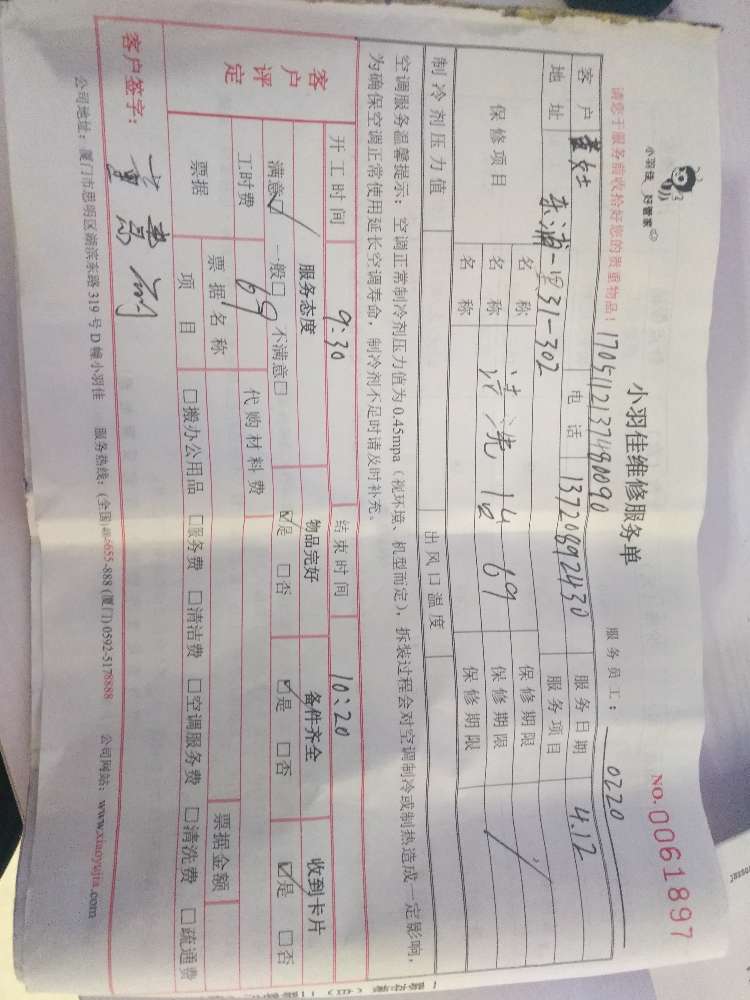 小羽佳 好管家
小羽佳维修服务单
NO.0061897
请您于服务前收拾好您的贵重物品!
1705112137490090
服务员工: 0220
客户 女士 电话 13720892430 服务日期 4.12
地址 东浦一里31-302 服务项目
保修项目 名称 保修期限
名称 清洗1台 69 保修期限 /
名称 保修期限
制冷剂压力值 出风口温度
空调服务温馨提示:空调正常制冷剂压力值为0.45mpa(视环境、机型而定),拆装过程会对空调制冷或制热造成一定影响,
为确保空调正常使用延长空调寿命,制冷剂不足时请及时补充。
开工时间 9:30 结束时间 10:20
客户评定 服务态度 物品完好 备件齐全 收到卡片
满意☑ 一般□ 不满意□ ☑是 □否 ☑是 □否 ☑是 □否
工时费 69 代购材料费
票据 票据名称 票据金额
项目 □搬办公用品 □服务费 □清洁费 □空调服务费 □清洗费 □疏通费
客户签字:
公司地址:厦门市思明区湖滨东路319号D幢小羽佳 服务热线:(全国)40-6655-888 (厦门)0592-5178888 公司网站:www.xiaoyujia.com